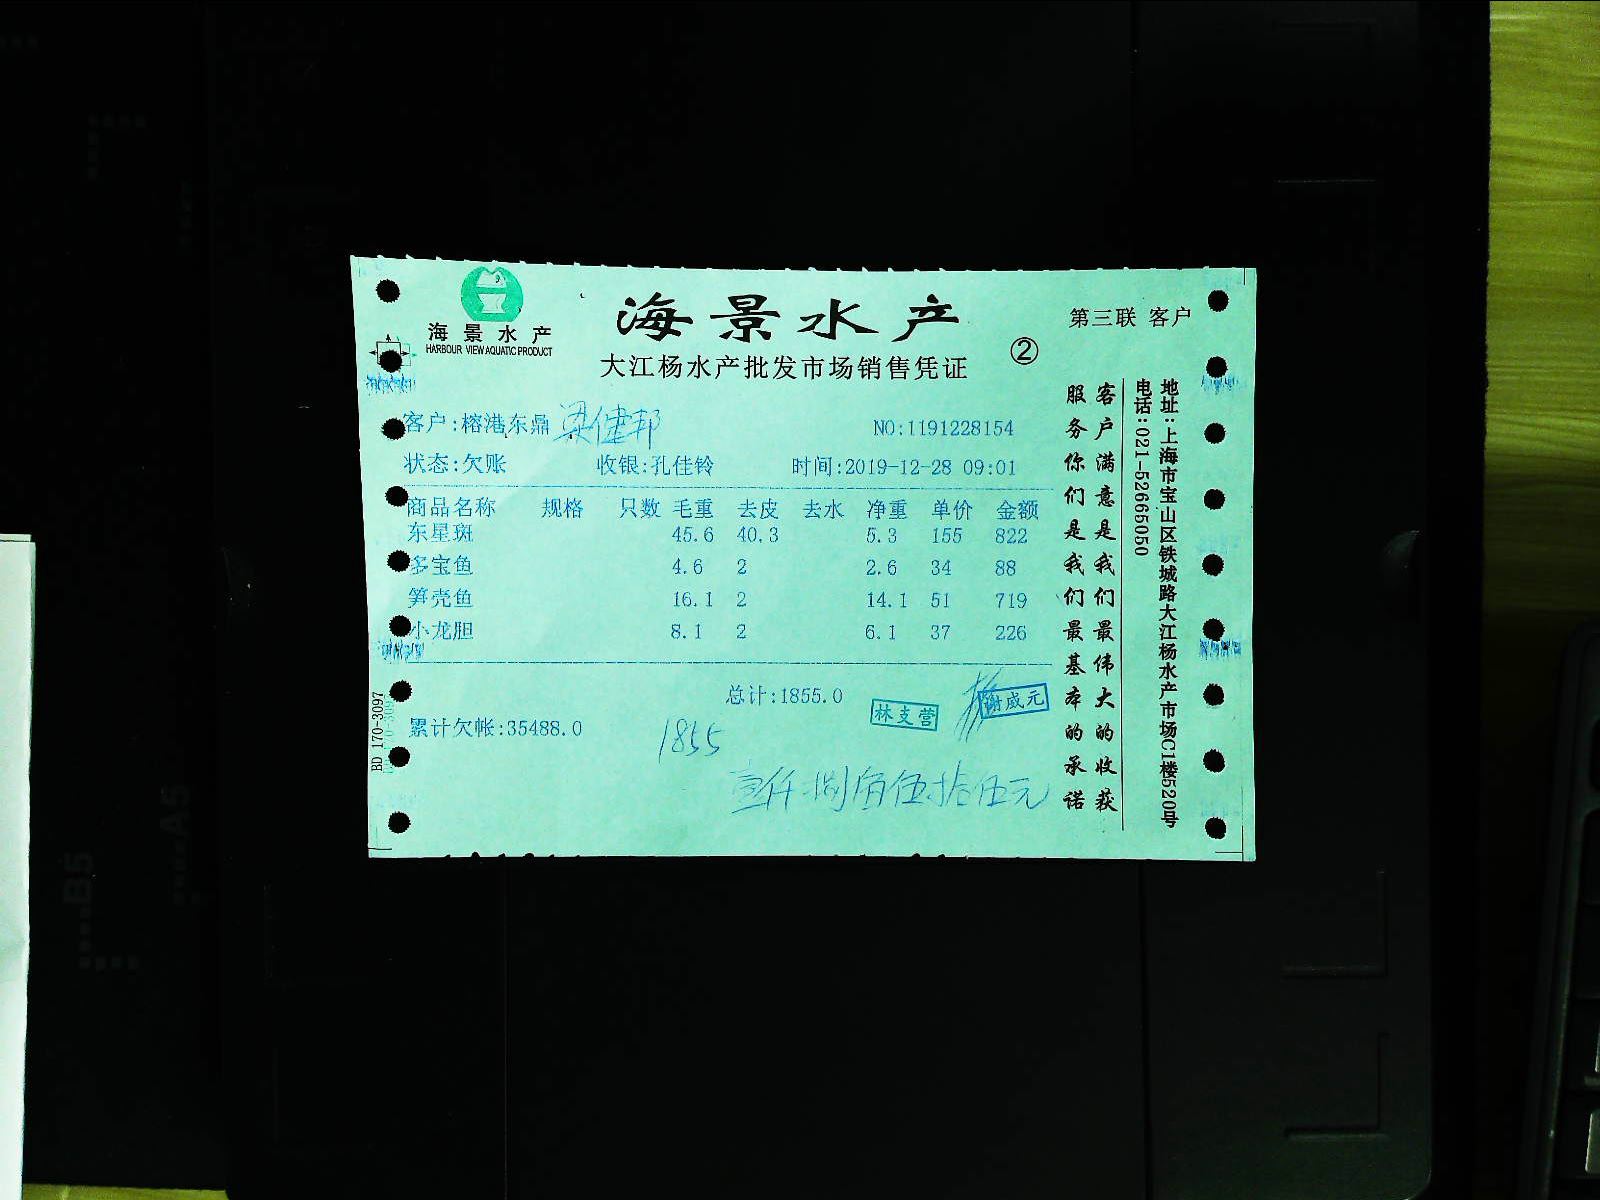 海景水产
HARBOUR VIEW AQUATIC PRODUCT
海景水产
大江杨水产批发市场销售凭证
②
第三联 客户
客户:榕港东鼎 梁健邦
NO:1191228154
状态:欠账 收银:孔佳铃 时间:2019-12-28 09:01
商品名称 规格 只数 毛重 去皮 去水 净重 单价 金额
东星斑 45.6 40.3 5.3 155 822
多宝鱼 4.6 2 2.6 34 88
笋壳鱼 16.1 2 14.1 51 719
小龙胆 8.1 2 6.1 37 226
总计:1855.0
林支营
谢威元
累计欠帐:35488.0
1855
壹仟捌佰伍拾伍元
客户满意是我们最伟大的收获
服务你们是我们最基本的承诺
地址:上海市宝山区铁城路大江杨水产市场C1楼520号
电话:021-52665050
BD 170-3097
B5
A5